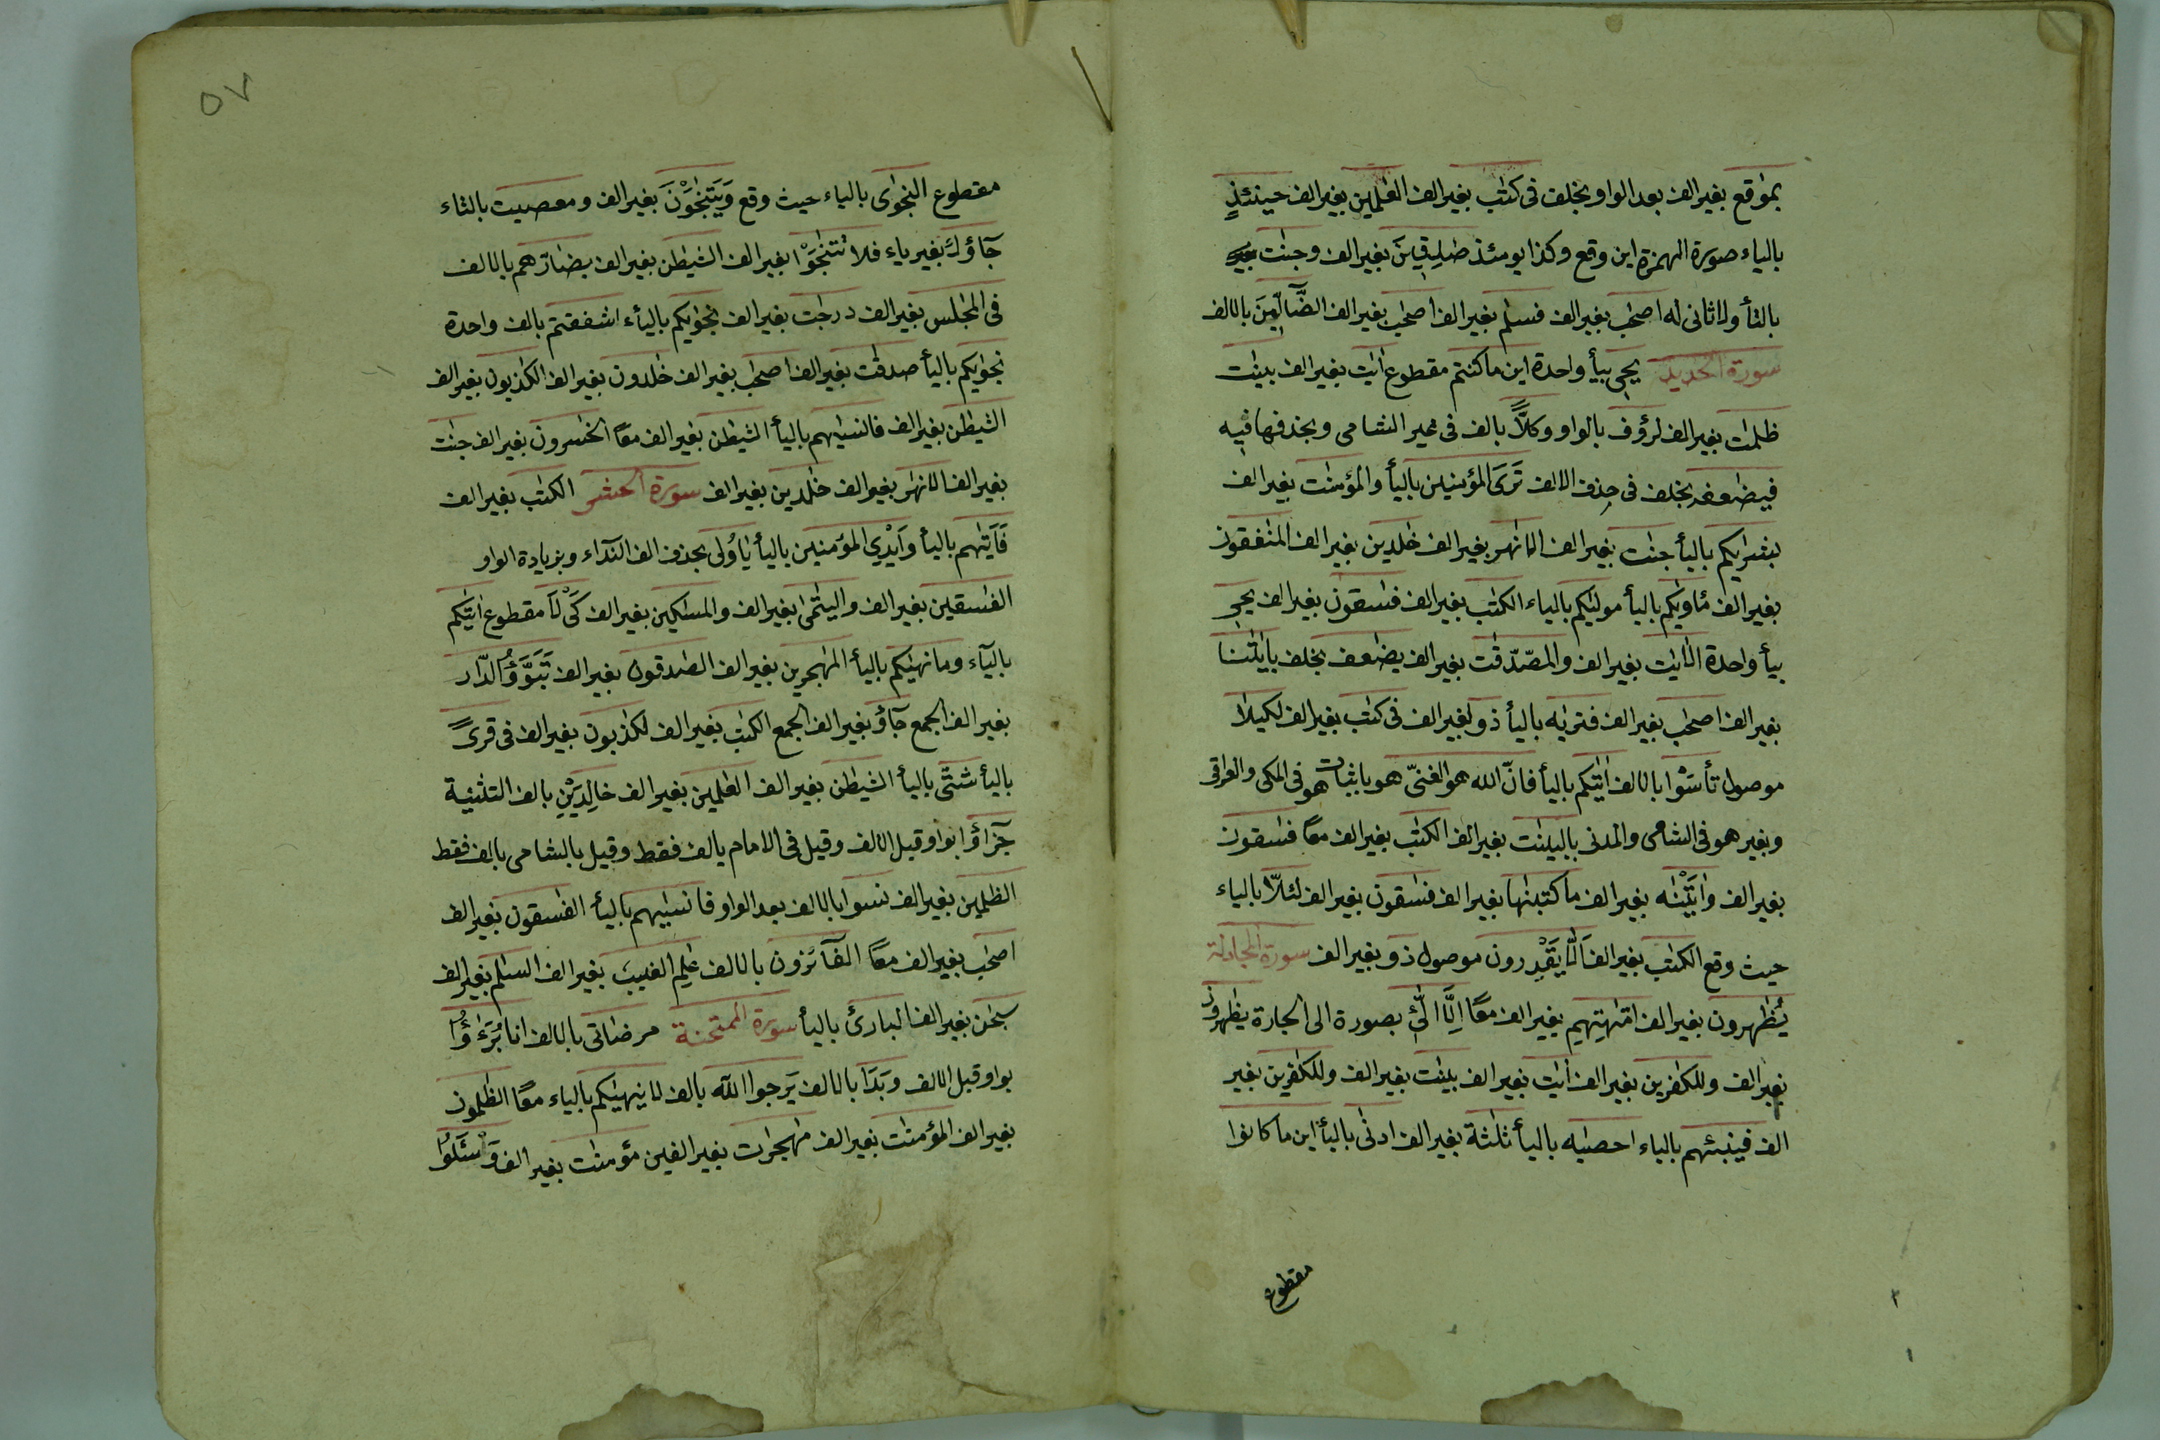 بمٰوقع بغير الف بعد الواو بخلف فى كتٰب بغير الف العٰلمين بغير الف حينئذٍ
بالياء صورة الهمزة اين وقع وكذا يومئذ صٰدِقِينَ بغير الف وجنٰت
بالتأ ولا ثانى له اصحٰب بغير الف فسلٰم بغير الف اصحٰب بغير الف الضَّآلّينَ بالالف
سورة الحديد يحيى بيأ واحدة اين ما كنتم مقطوع اٰيٰت بغير الف بينٰت
ظلمٰت بغير الف لرؤف بالواو وكلاًّ بالف فى غير الشامى وبحذفها فيه
فيضٰعفه بخلف فى حذف الالف تَرَى المؤمنين باليأ والمؤمنٰت بغير الف
بشرٰيكم باليأ جنٰت بغير الف الانهٰر بغير الف خٰلدين بغير الف المنٰفقون
بغير الف مأوٰيكم باليأ مولٰيكم بالياء الكتٰب بغير الف فٰسقون بغير الف يحيى
بيأ واحدة الاٰيٰت بغير الف والمصّدّقٰت بغير الف يضٰعف بخلف باٰيٰتنا
بغير الف اصحٰب بغير الف فترٰيه باليأ ذو بغير الف فى كتٰب بغير الف لكيلا
موصول تأسَوْا بالالف اٰتٰيكم باليأ فانّ الله هو الغنىّ هو باثبات هو فى المكى والعراقى
وبغير هو فى الشامى والمدنى بالبينٰت بغير الف الكتٰب بغير الف معًا فٰسقون
بغير الف واٰتَيْنٰه بغير الف ما كتبنٰها بغير الف فٰسقون بغير الف لئلّا بالياء
حيث وقع الكتٰب بغير الف اَلَّا يَقْدِرون موصول ذو بغير الف سورة المجادلة
يُظٰهرون بغير الف امّهٰتِهِم بغير الف معًا اِلَّا الّٰئِ بصورة الى الجارة يظٰهرون
بغير الف وللكٰفرين بغير الف اٰيٰت بغير الف بينٰت بغير الف وللكٰفرين بغير
الف فينبئهم بالياء احصٰيه باليأ ثلٰثة بغير الف ادنٰى باليأ اين ما كانوا
مقطوع
٥٧
مقطوع النجوٰى بالياء حيث وقع وَيَتَنٰجَوْنَ بغير الف ومعصيت بالتاء
جآؤك بغير ياء فلا تتنٰجَوْا بغير الف الشيطٰن بغير الف بضارّهم بالالف
فى المجٰلس بغير الف درجٰت بغير الف نجوٰيكم باليأء اشفقتم بالف واحدة
نجوٰيكم باليأ صدقٰت بغير الف اصحٰب بغير الف خٰلدون بغير الف الكٰذبون بغير الف
الشيطٰن بغير الف فانسٰيهم باليأ الشيطٰن بغير الف معًا الخٰسرون بغير الف جنٰت
بغير الف الانهٰر بغير الف خٰلدين بغير الف سورة الحشر الكتٰب بغير الف
فَاَتٰيهم باليأ واَيْدِي المؤمنين باليأ يٰاُولى بحذف الف النداء وبزيادة الواو
الفٰسقين بغير الف واليتٰمٰى بغير الف والمسٰكين بغير الف كَىْ لَا مقطوع اٰتٰيكم
باليآء وما نهٰيكم باليأ المهٰجرين بغير الف الصٰدقون بغير الف تَبَوَّؤُ الدّار
بغير الف الجمع جآؤ بغير الف الجمع الكتٰب بغير الف لكٰذبون بغير الف فى قرىً
باليأ شتّٰى باليأ الشيطٰن بغير الف العٰلمين بغير الف خالِدَيْنِ بالف التثنية
جَزٰاؤُا بواو قبل الالف وقيل فى الامام بالف فقط وقيل بالشامى بالف فقط
الظٰلمين بغير الف نسوا بالالف بعد الواو فانسٰيهم باليأ الفٰسقون بغير الف
اصحٰب بغير الف معًا الفآئزون بالالف عٰلِم الغيب بغير الف السلٰم بغير الف
سبحٰن بغير الف البارئ باليأ سورة الممتحنة مرضاتى بالالف انا بُرَءٰؤُا
بواو قبل الالف وبَدَا بالالف يَرجوا اللّٰه بالف لا ينهٰيكم بالياء معًا الظٰلمون
بغير الف المؤمنٰت بغير الف مهٰجرٰت بغير الفين مؤمنٰت بغير الف وَسْئَلُوْا